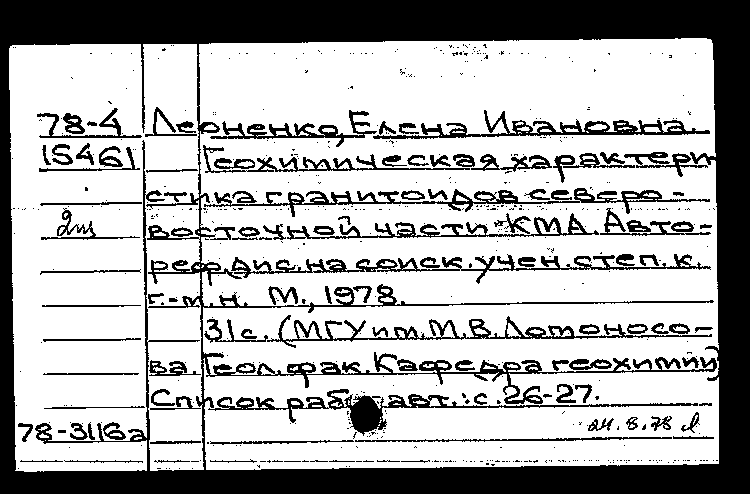 78-4 Леоненко, Елена Ивановна.
15461 Геохимическая характери-
стика гранитоидов северо-
2ш восточной части КМА. Авто-
реф.дис.на соиск.учен.степ.к.
г.-м.н. М., 1978.
31с. (МГУ им. М.В. Ломоносо-
ва. Геол.фак. Кафедра геохимии)
Список раб авт.: с. 26-27.
78-3116а 24.8.78